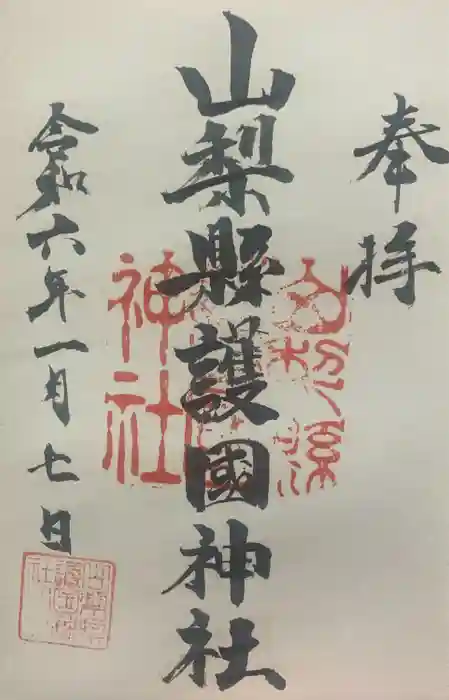 奉拝
山梨縣護國神社
令和六年一月七日
神社